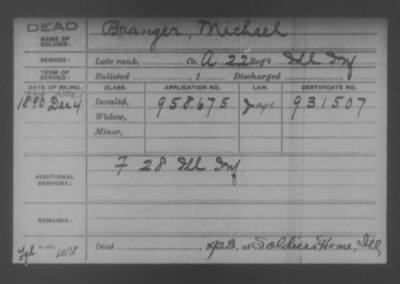 DEAD
NAME OF SOLDIER: Branger, Michael
SERVICE: Late rank, Co. A, 22 Reg't Ill Inf
TERM OF SERVICE: Enlisted , 1 Discharged
DATE OF FILING. CLASS. APPLICATION NO. LAW. CERTIFICATE NO.
1890 Dec 4 Invalid, 958.675 931507
Widow,
Minor,
ADDITIONAL SERVICES: F 28 Ill Inf
REMARKS:
Died , 1923, at Soldiers Home, Ill